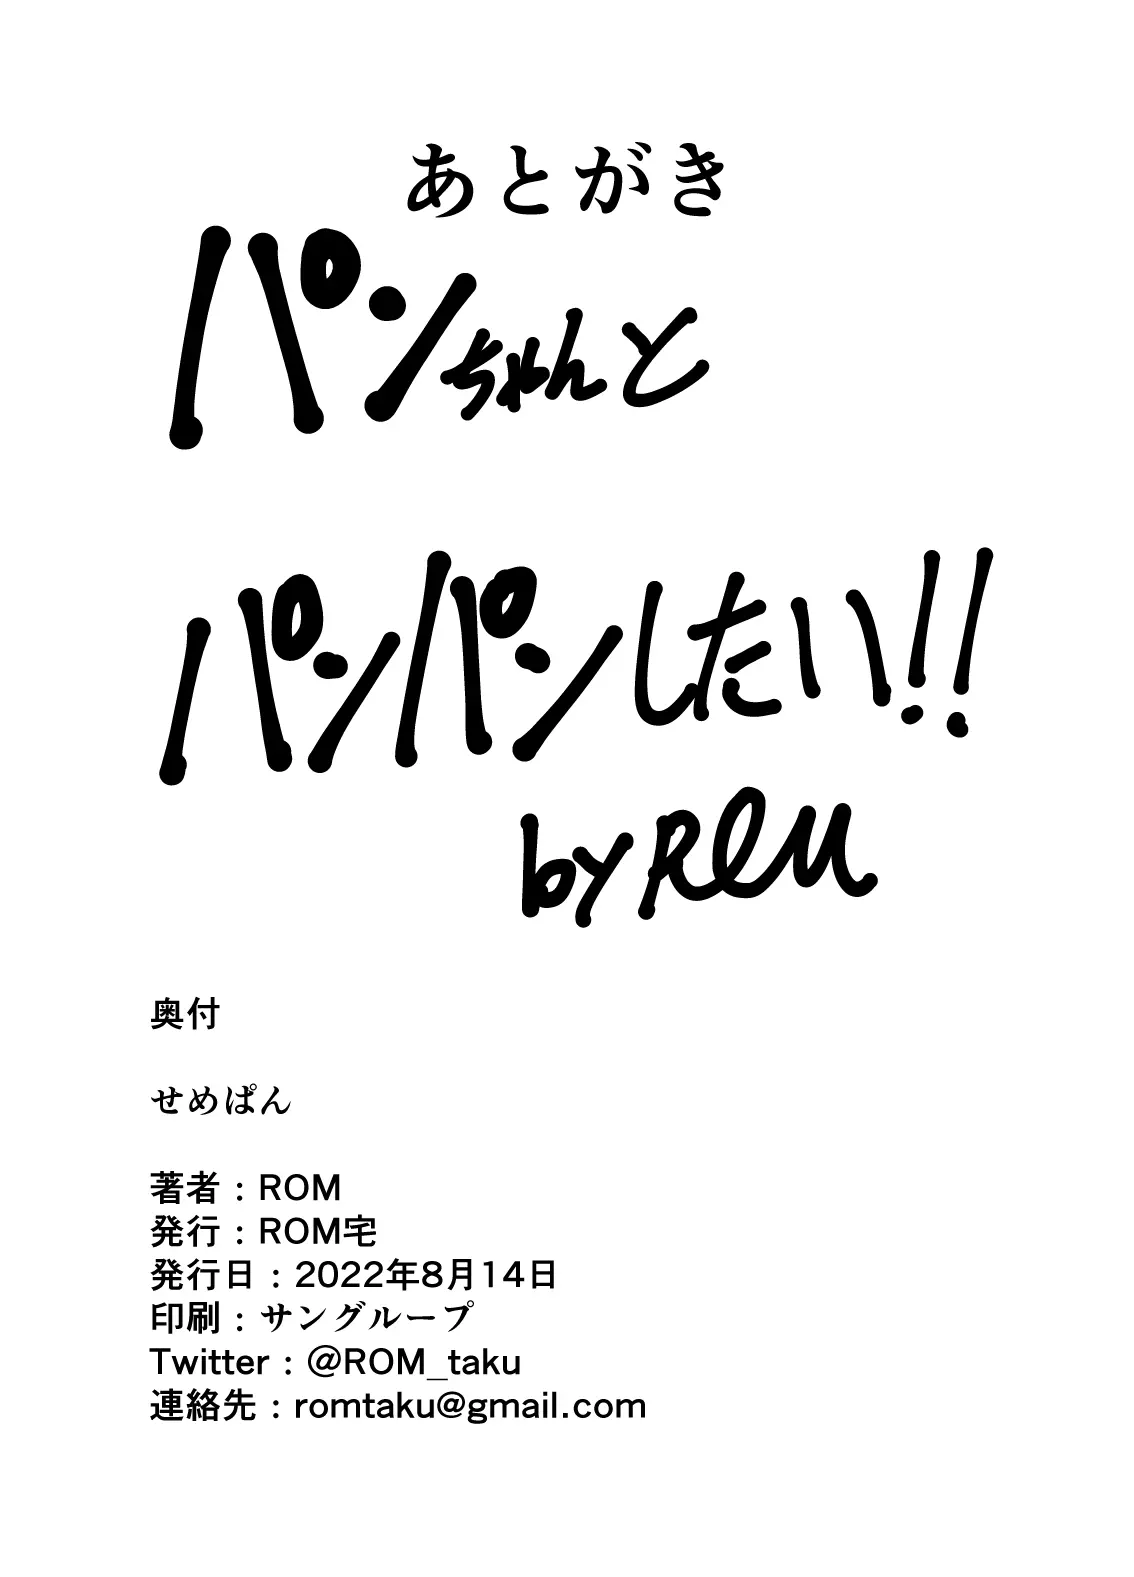 あとがき
パンちゃんと
パンパンしたい!!
by ROM
奥付
せめぱん
著者：ROM
発行：ROM宅
発行日：2022年8月14日
印刷：サングループ
Twitter：@ROM_taku
連絡先：romtaku@gmail.com